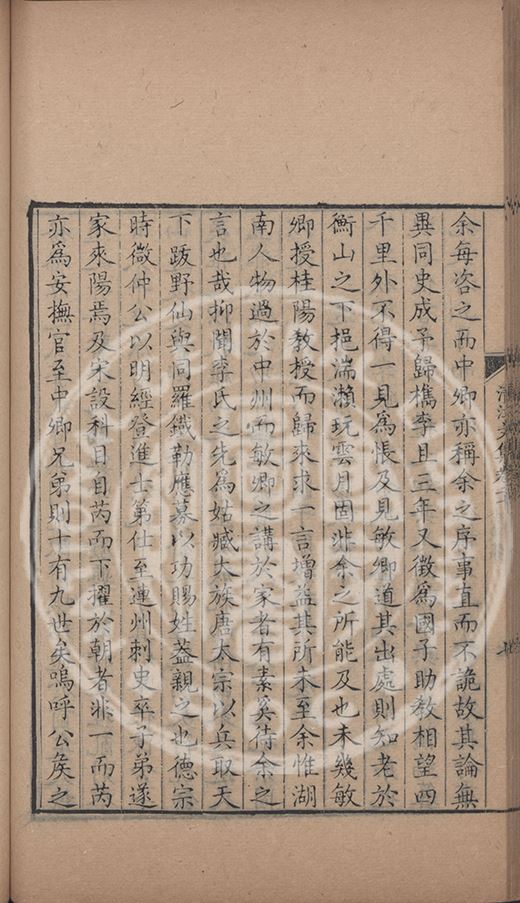 余每咨之而中卿亦稱余之序事直而不詭故其論無
異同史成予歸檇李且三年又徵爲國子助敎相望四
千里外不得一見爲悵及見敏卿道其出處則知老於
衡山之下挹湍瀨玩雲月固非余之所能及也未幾敏
卿授桂陽敎授而歸來求一言增益其所未至余惟湖
南人物過於中州而敏卿之講於家者有素奚待余之
言也哉抑聞李氏之先爲姑臧大族唐太宗以兵取天
下跋野仙與同羅鐵勒應募以功賜姓葢親之也德宗
時微仲公以明經登進士第仕至連州刺史卒子弟遂
家來陽焉及宋設科目自芮而下擢於朝者非一而芮
亦爲安撫官至中卿兄弟則十有九世矣嗚呼公矦之